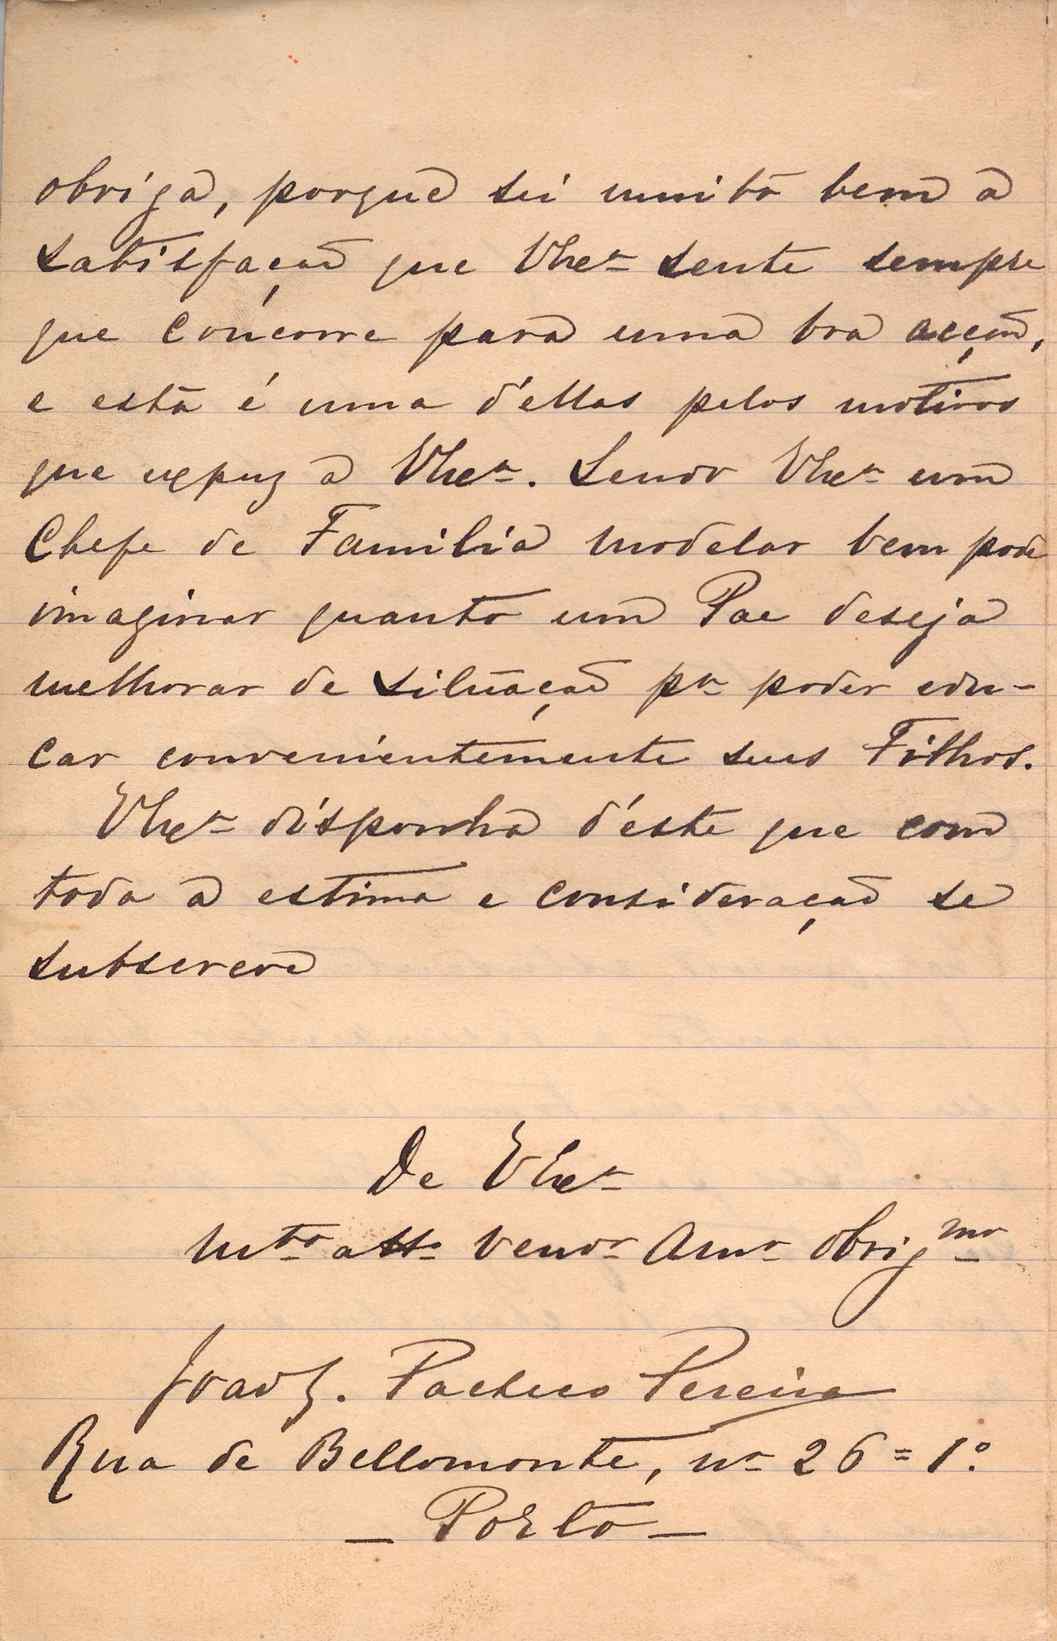 obriga, porque sei muito bem a
satisfação que VExcia sente sempre
que concorre para uma boa acção,
e esta é uma d'ellas pelos motivos
que expuz a VExcia. Sendo VExcia um
Chefe de Familia modelar bem pode
imaginar quanto um Pae deseja
melhorar de situação pa poder edu-
car convenientemente seus Filhos.
VExcia disponha d'este que com
toda a estima e consideração se
subscreve
De VExcia
Mto atto venor Amo obrigmo
João Pacheco Pereira
Rua de Bellomonte, no 26 = 1º
— Porto —